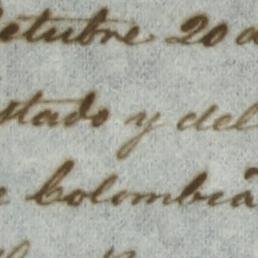 Octubre 20 d
stado y del
e Colombia